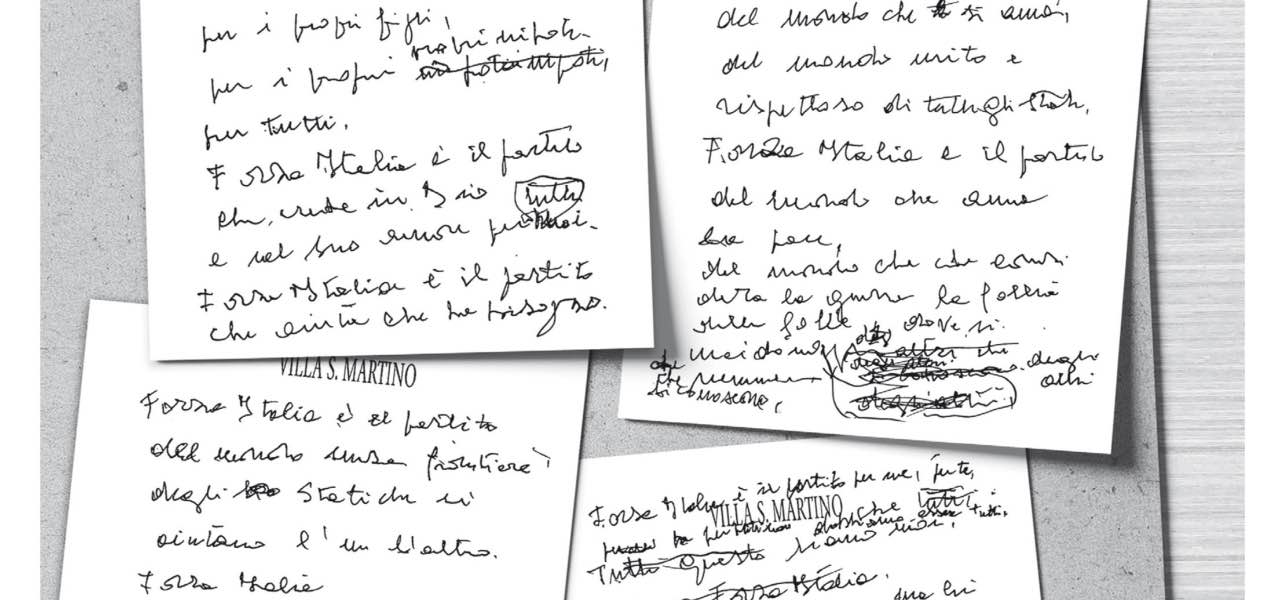 per i propri figli,
per i propri propri nipoti
per tutti.
Forza Italia è il partito
che crede in Dio
e nel suo amore per tutti noi.
Forza Italia è il partito
che aiuta chi ha bisogno.
del mondo che si ama,
del mondo unito e
rispettoso di tutti gli Stati,
Forza Italia è il partito
del mondo che ama
la pace,
del mondo che consi
dera la guerra la follia
delle follie, dove si
uccidono
che nemmeno
si conoscono,
degli
altri
VILLA S. MARTINO
Forza Italia è il partito
del mondo senza frontiere,
degli Stati che si
aiutano l'un l'altro.
Forza Italia
Forza Italia è il partito per me, per te,
VILLA S. MARTINO
per tutti
Tutto questo siamo noi.
Forza Italia.